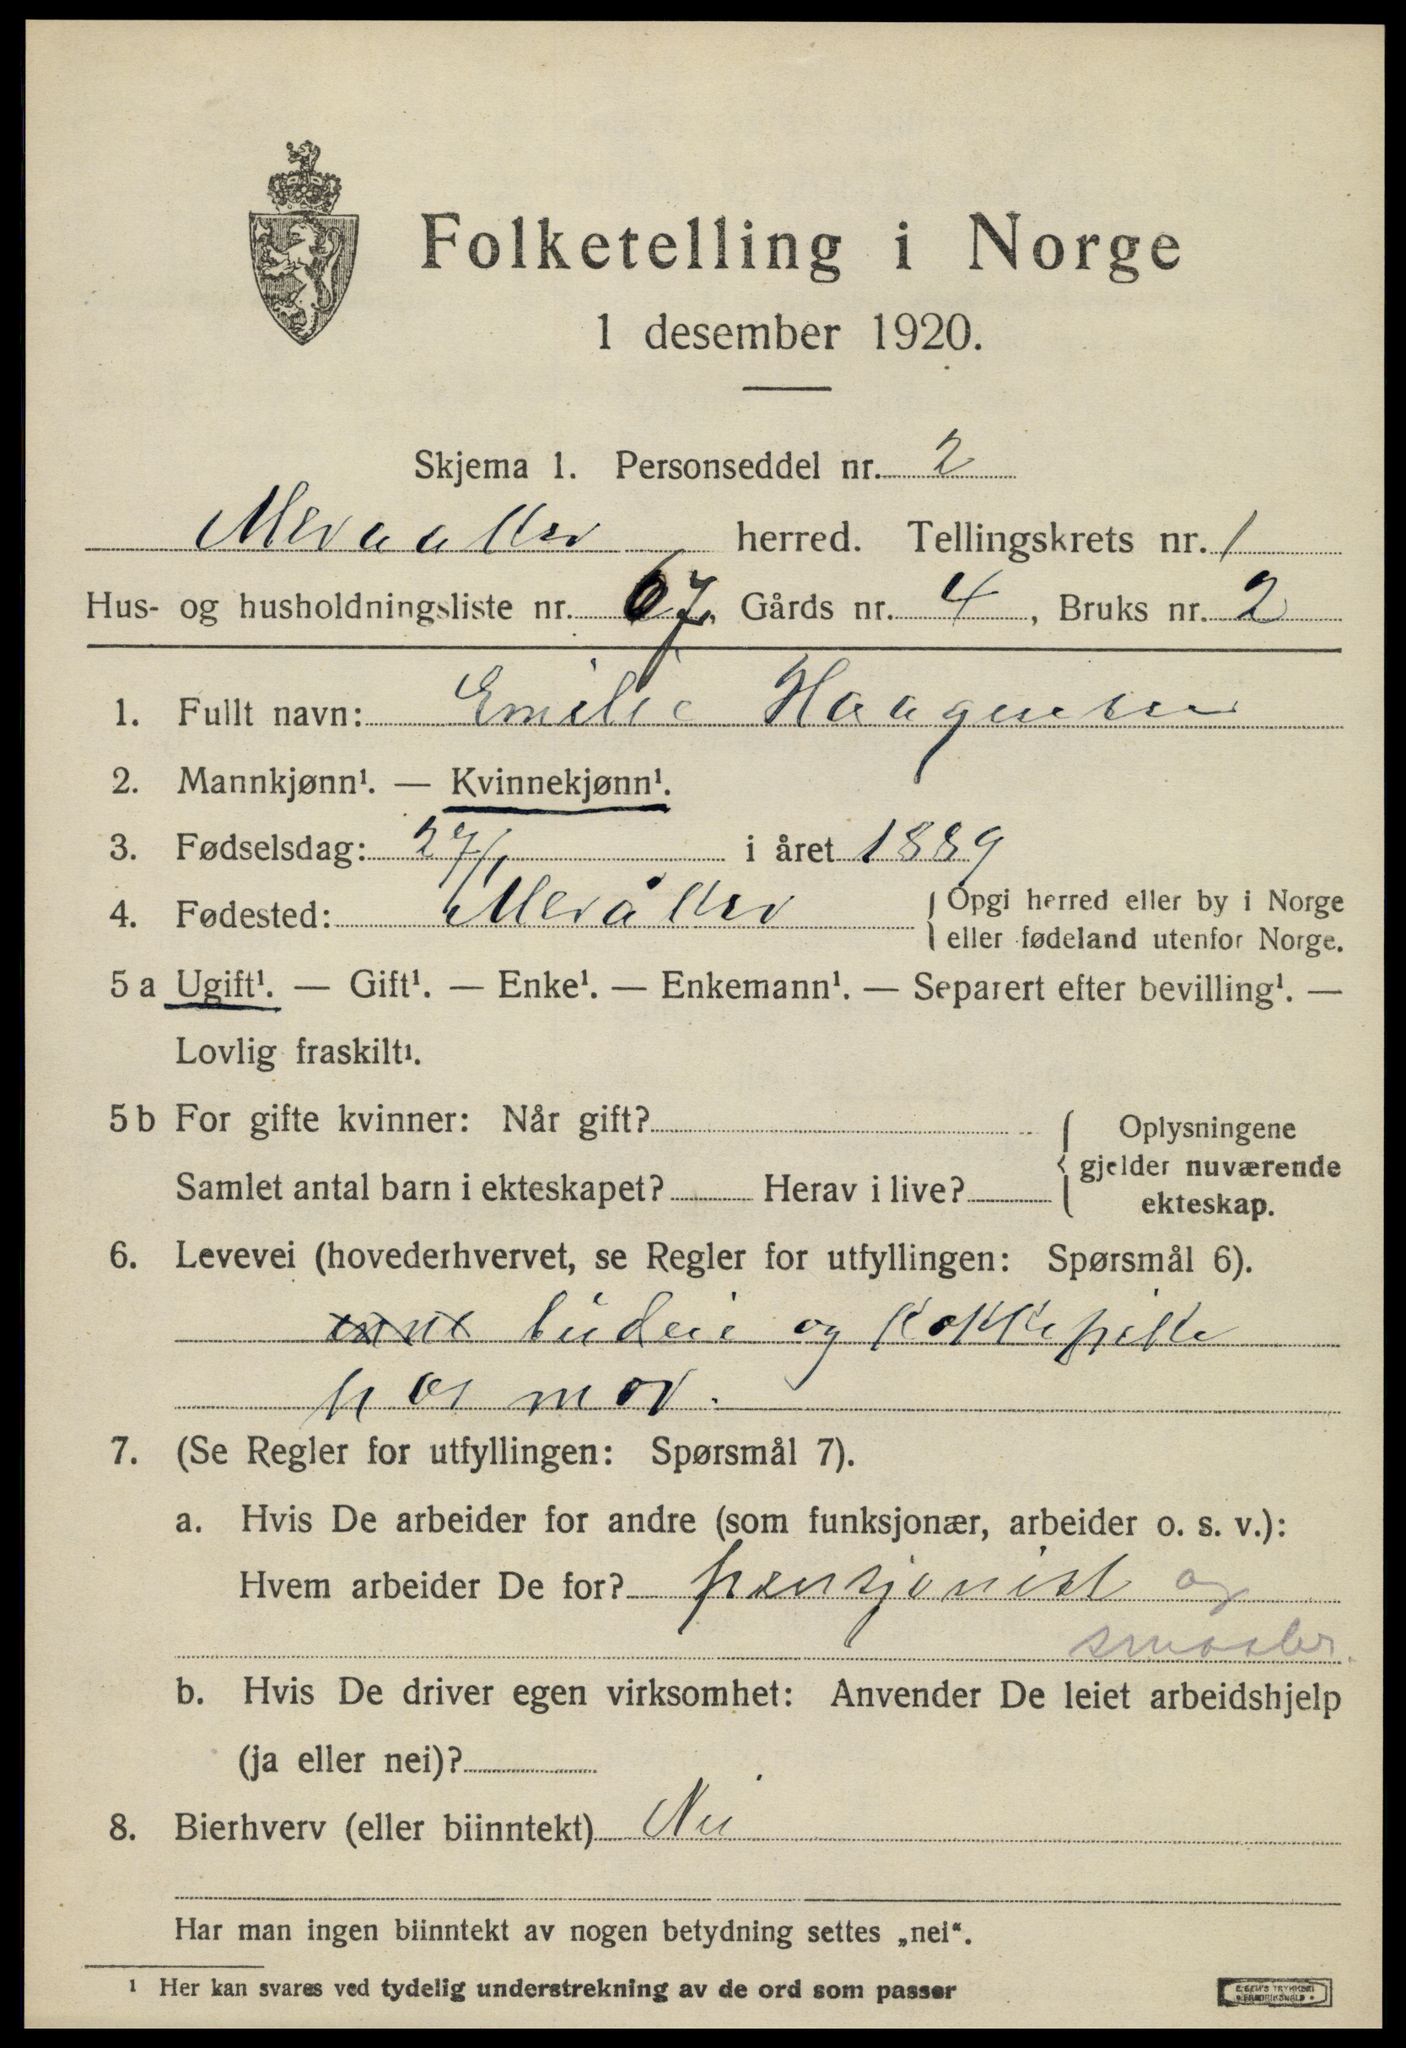 Folketelling i Norge
1 desember 1920.
Skjema 1. Personseddel nr. 2
herred. Tellingskrets nr. 1
Hus- og husholdningsliste nr. 67, Gårds nr. 4, Bruks nr. 2
1. Fullt navn: Emilie Haagensen
2. Mannkjønn¹. — Kvinnekjønn¹.
3. Fødselsdag: 27/1 i året 1889
4. Fødested: { Opgi herred eller by i Norge
eller fødeland utenfor Norge.
5 a Ugift¹. — Gift¹. — Enke¹. — Enkemann¹. — Separert efter bevilling¹. —
Lovlig fraskilt¹.
5 b For gifte kvinner: Når gift? { Oplysningene
gjelder nuværende
ekteskap.
Samlet antal barn i ekteskapet? Herav i live?
6. Levevei (hovederhvervet, se Regler for utfyllingen: Spørsmål 6).
budeie og kokkepike
hos mor.
7. (Se Regler for utfyllingen: Spørsmål 7).
a. Hvis De arbeider for andre (som funksjonær, arbeider o. s. v.):
Hvem arbeider De for? pensjonist og
b. Hvis De driver egen virksomhet: Anvender De leiet arbeidshjelp
(ja eller nei)?
8. Bierhverv (eller biinntekt) Nei
Har man ingen biinntekt av nogen betydning settes „nei“.
¹ Her kan svares ved tydelig understrekning av de ord som passer